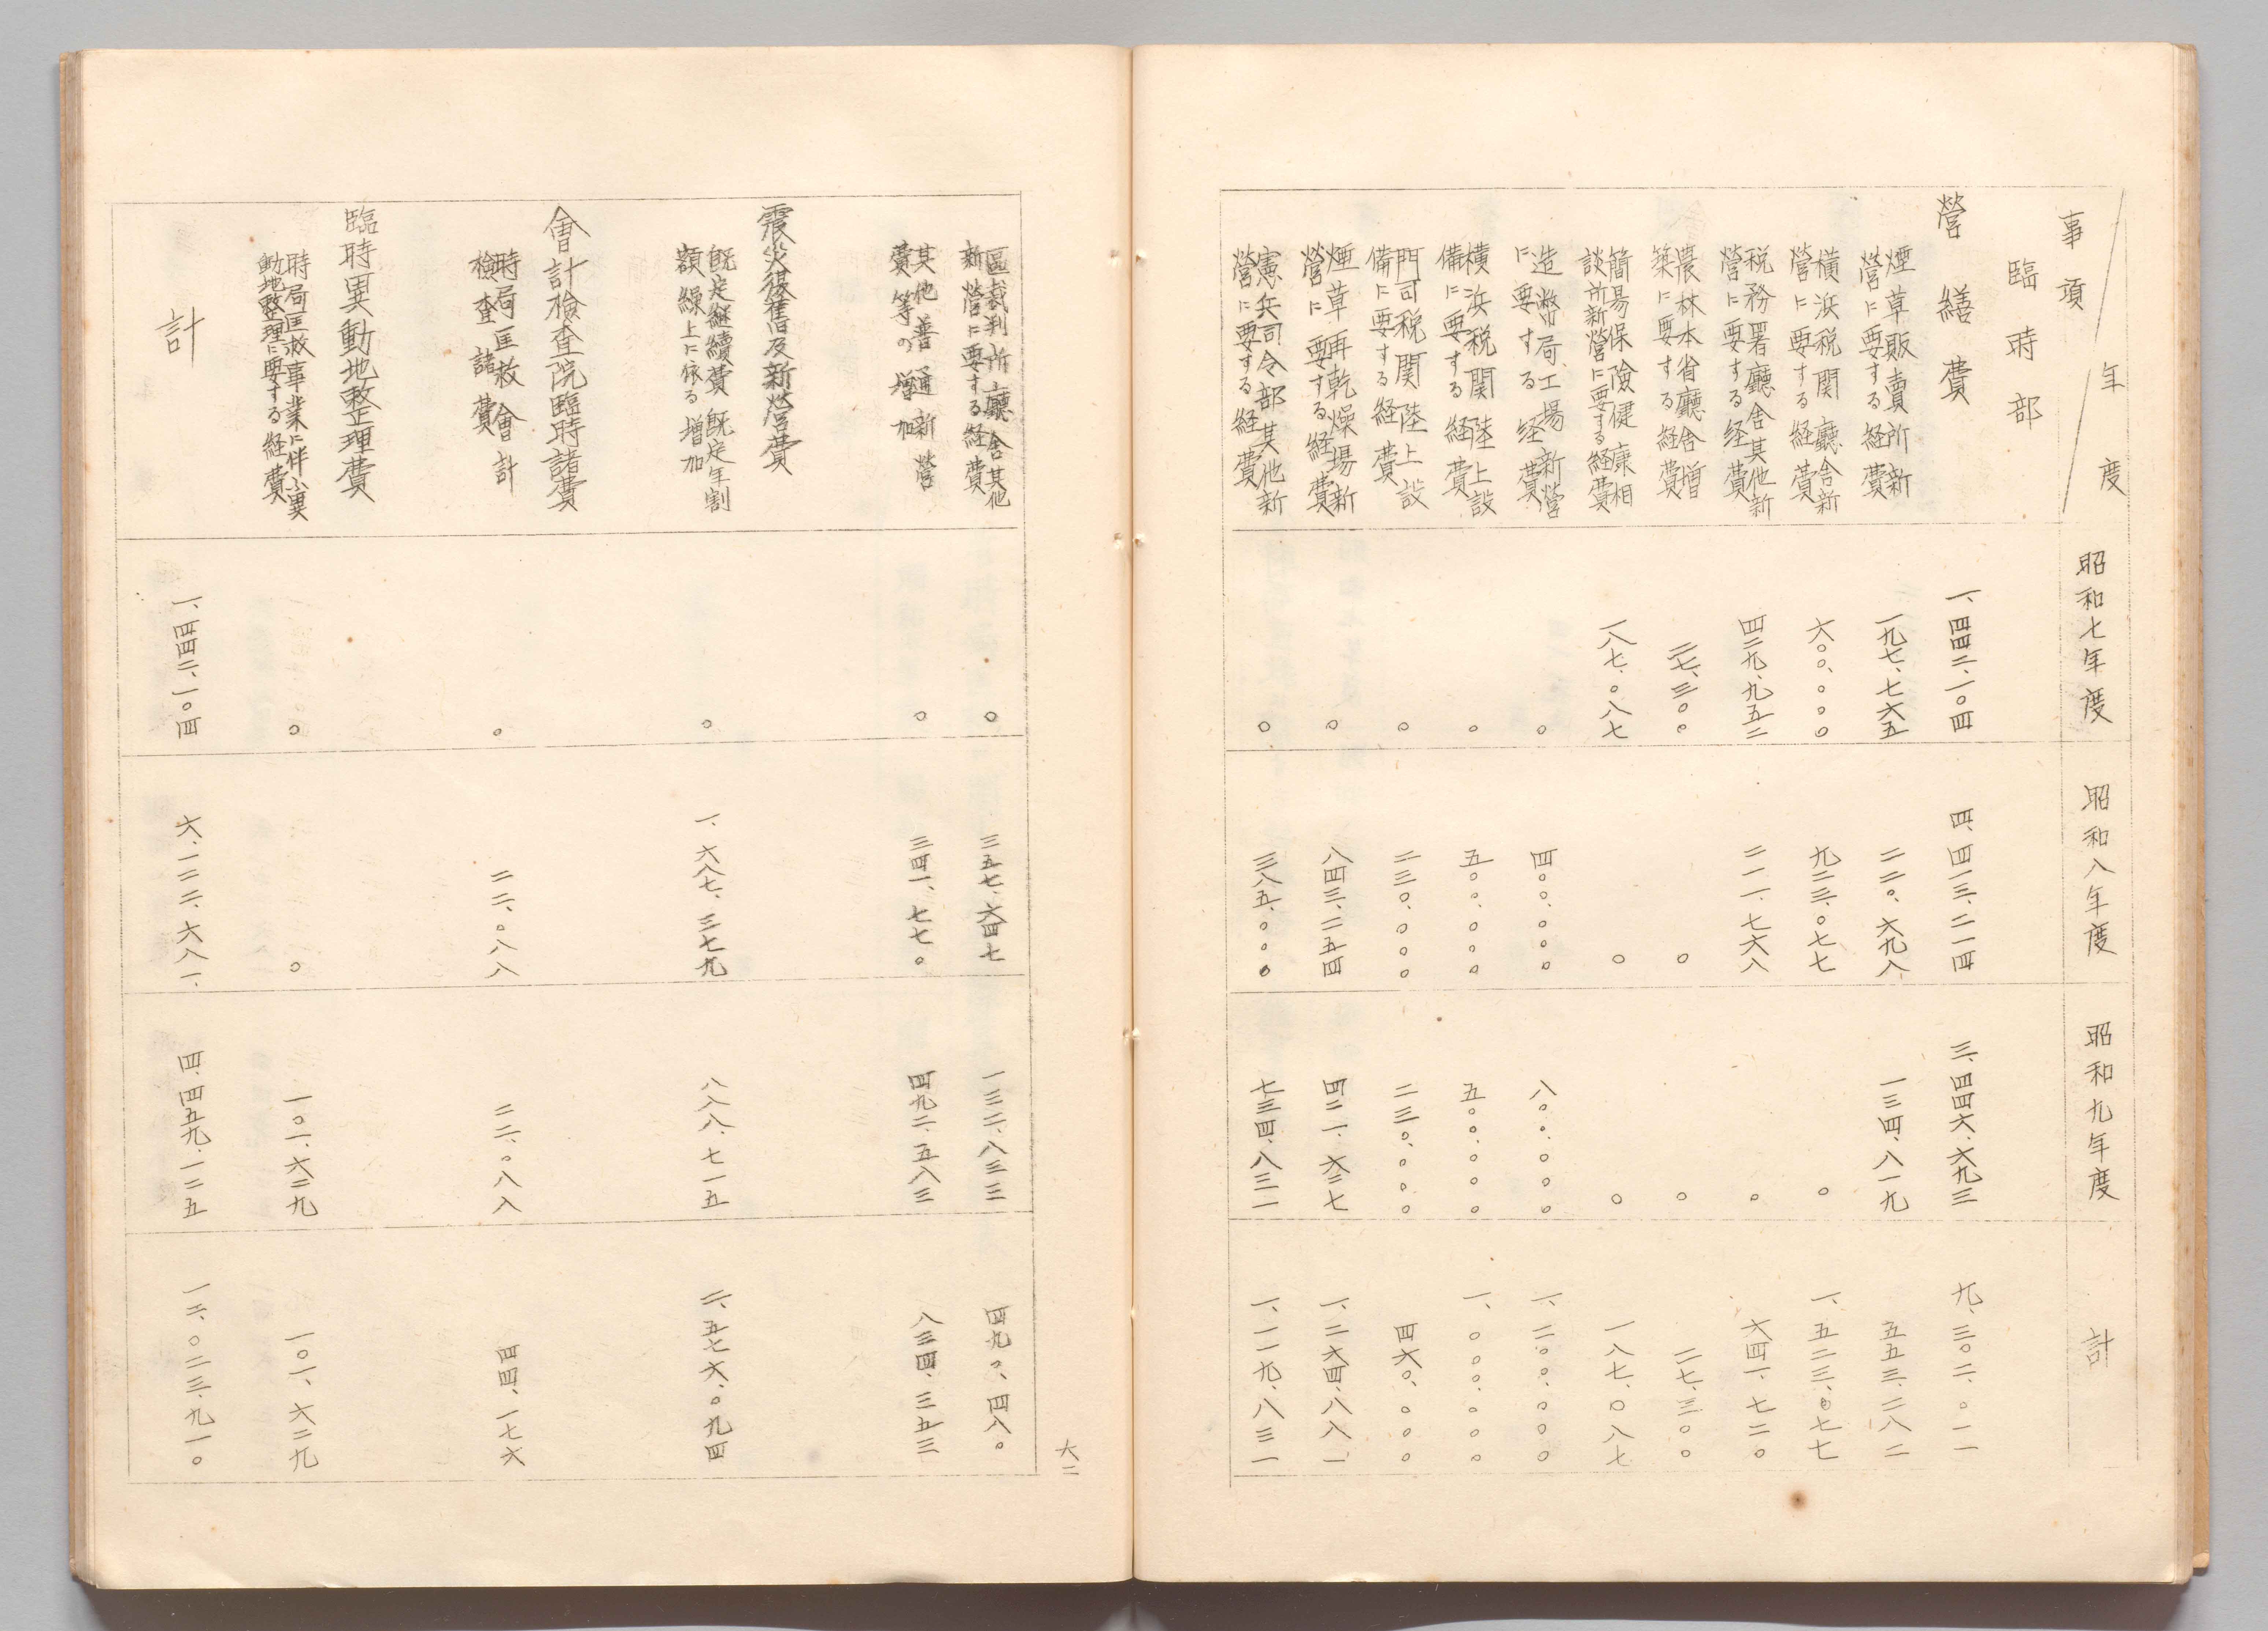 事項 年度 昭和七年度 昭和八年度 昭和九年度 計
臨時部
營繕費 一、四四二、一〇四 四、四一三、二一四 三、四四六、六九三 九、三〇二、〇一一
煙草販賣所新
營に要する経費 一九七、七六五 二二〇、六九八 一三四、八一九 五五三、二八二
橫浜税関廳舎新
營に要する経費 六〇〇、〇〇〇 九二三、〇七七 〇 一、五二三、〇七七
税務署廳舎其他新
營に要する経費 四二九、九五二 二一一、七六八 〇 六四一、七二〇
農林本省廳舎增
築に要する経費 二七、三〇〇 〇 〇 二七、三〇〇
簡易保險健康相
談所新營に要する経費 一八七、〇八七 〇 〇 一八七、〇八七
造幣局工場新營
に要する経費 〇 四〇〇、〇〇〇 八〇〇、〇〇〇 一、二〇〇、〇〇〇
橫浜税関陸上設
備に要する経費 〇 五〇〇、〇〇〇 五〇〇、〇〇〇 一、〇〇〇、〇〇〇
門司税関陸上設
備に要する経費 〇 二三〇、〇〇〇 二三〇、〇〇〇 四六〇、〇〇〇
煙草再乾燥場新
營に要する経費 〇 八四三、二五四 四二一、六二七 一、二六四、八八一
憲兵司令部其他新
營に要する経費 〇 三八五、〇〇〇 七三四、八三一 一、一一九、八三一
區裁判所廳舎其他
新營に要する経費 〇 三五七、六四七 一三二、八三三 四九〇、四八〇
其他善通新營
費等の增加 〇 三四一、七七〇 四九二、五八三 八三四、三五三
震災復舊及新營費
既定継續費既定年割
額繰上に依る增加 〇 一、六八七、三七九 八八八、七一五 二、五七六、〇九四
會計檢查院臨時諸費
時局匡救會計
檢查諸費 〇 二二、〇八八 二二、〇八八 四四、一七六
臨時異動地整理費
時局匡救事業に伴ふ異
動地整理に要する経費 〇 〇 一〇一、六二九 一〇一、六二九
計 一、四四二、一〇四 六、一二二、六八一 四、四五九、一二五 一二、〇二三、九一〇
六二